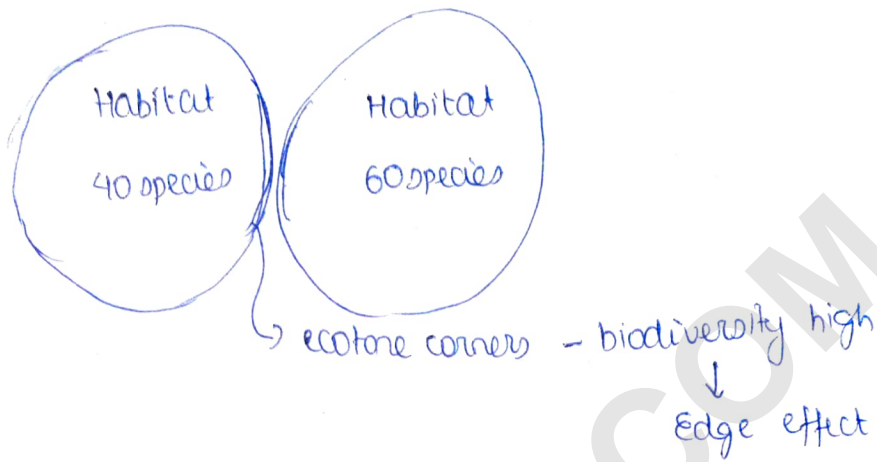 Habitat
40 species
Habitat
60 species
ecotone corners – biodiversity high
Edge effect
COM